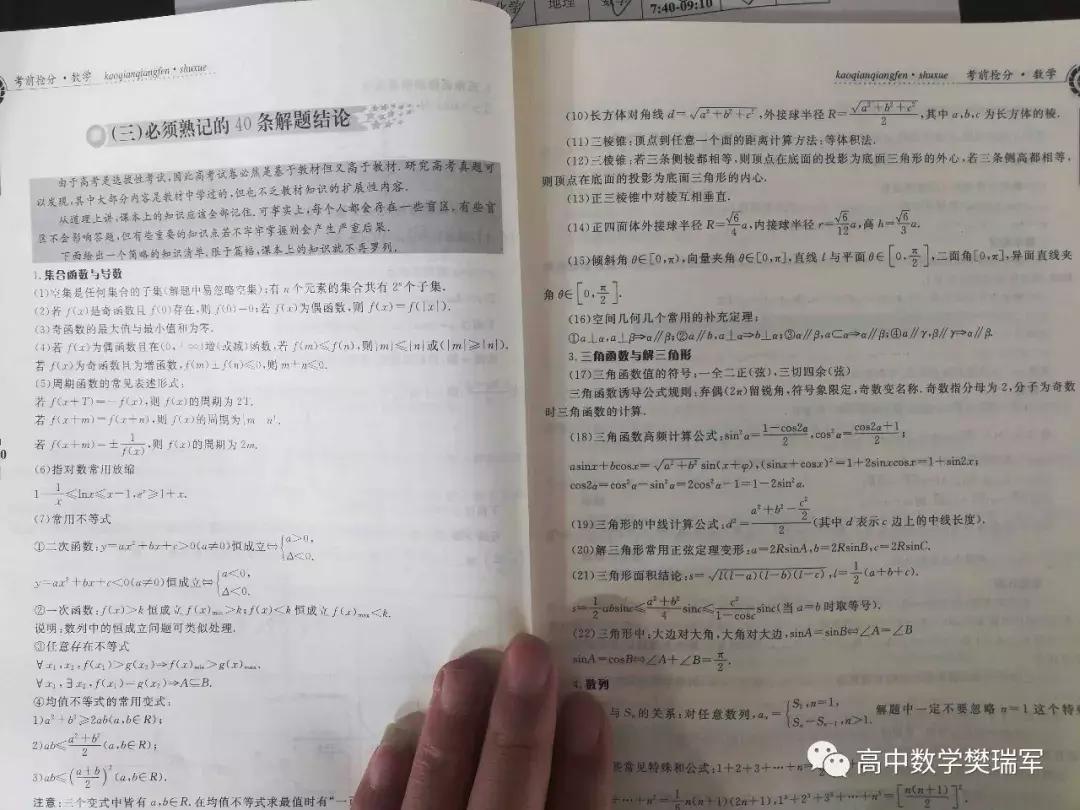 化学 地理 数学 7:40-09:10
考前抢分·数学 kaoqianqiangfen·shuxue
(三)必须熟记的 40 条解题结论
由于高考是选拔性考试,因此高考试卷必然是基于教材但又高于教材.研究高考真题可
以发现,其中大部分内容是教材中学过的,但也不乏教材知识的扩展性内容.
从道理上讲,课本上的知识应该全部记住,可事实上,每个人都会存在一些盲区,有些盲
区不会影响答题,但有些重要的知识点若不牢牢掌握则会产生严重后果.
下面给出一个简略的知识清单,限于篇幅,课本上的知识就不再罗列.
1.集合函数与导数
(1)空集是任何集合的子集(解题中易忽略空集);有 n 个元素的集合共有 2ⁿ 个子集.
(2)若 f(x)是奇函数且 f(0)存在,则 f(0)=0;若 f(x)为偶函数,则 f(x)=f(|x|).
(3)奇函数的最大值与最小值和为零.
(4)若 f(x)为偶函数且在(0,+∞)增(或减)函数,若 f(m)≤f(n),则|m|≤|n|或(|m|≥|n|).
若 f(x)为奇函数且为增函数,f(m)+f(n)≤0,则 m+n≤0.
(5)周期函数的常见表述形式:
若 f(x+T)=-f(x),则 f(x)的周期为 2T.
若 f(x+m)=f(x+n),则 f(x)的周期为|m-n|.
若 f(x+m)=±1/f(x),则 f(x)的周期为 2m.
(6)指对数常用放缩
1-1/x≤lnx≤x-1,eˣ≥1+x.
(7)常用不等式
①二次函数:y=ax²+bx+c>0(a≠0)恒成立⇔{a>0, Δ<0.
y=ax²+bx+c<0(a≠0)恒成立⇔{a<0, Δ<0.
②一次函数:f(x)>k 恒成立 f(x)min>k;f(x)<k 恒成立 f(x)max<k.
说明:数列中的恒成立问题可类似处理.
③任意存在不等式
∀x₁,x₂,f(x₁)>g(x₂)⇒f(x)min>g(x)max.
∀x₁,∃x₂,f(x₁)=g(x₂)⇒A⊆B.
④均值不等式的常用变式:
1)a²+b²≥2ab(a,b∈R);
2)ab≤(a²+b²)/2(a,b∈R);
3)ab≤((a+b)/2)²(a,b∈R).
注意:三个变式中皆有 a,b∈R.在均值不等式求最值时有"一
kaoqianqiangfen·shuxue 考前抢分·数学
(10)长方体对角线 d=√(a²+b²+c²),外接球半径 R=√(a²+b²+c²)/2,其中 a,b,c 为长方体的棱.
(11)三棱锥:顶点到任意一个面的距离计算方法:等体积法.
(12)三棱锥:若三条侧棱都相等,则顶点在底面的投影为底面三角形的外心,若三条侧高都相等,
则顶点在底面的投影为底面三角形的内心.
(13)正三棱锥中对棱互相垂直.
(14)正四面体外接球半径 R=√6/4 a,内接球半径 r=√6/12 a,高 h=√6/3 a.
(15)倾斜角 θ∈[0,π),向量夹角 θ∈[0,π],直线 l 与平面 θ∈[0,π/2],二面角[0,π],异面直线夹
角 θ∈[0,π/2].
(16)空间几何几个常用的补充定理:
①a⊥α,a⊥β⇒α∥β;②a∥b,a⊥α⇒b⊥α;③α∥β,a⊂α⇒a∥β;④α∥γ,β∥γ⇒α∥β.
3.三角函数与解三角形
(17)三角函数值的符号,一全二正(弦),三切四余(弦)
三角函数诱导公式规则:弃偶(2π)留锐角,符号象限定,奇数变名称.奇数指分母为 2,分子为奇数
时三角函数的计算.
(18)三角函数高频计算公式:sin²α=(1-cos2α)/2,cos²α=(cos2α+1)/2;
asinx+bcosx=√(a²+b²)sin(x+φ),(sinx+cosx)²=1+2sinxcosx=1+sin2x;
cos2α=cos²α-sin²α=2cos²α-1=1-2sin²α.
(19)三角形的中线计算公式:d²=(a²+b²-c²/2)/2(其中 d 表示 c 边上的中线长度).
(20)解三角形常用正弦定理变形:a=2RsinA,b=2RsinB,c=2RsinC.
(21)三角形面积结论:s=√(l(l-a)(l-b)(l-c)),l=1/2(a+b+c).
s=1/2 absinc≤(a²+b²)/4 sinc≤c²/(1-cosc) sinc(当 a=b 时取等号).
(22)三角形中:大边对大角,大角对大边,sinA=sinB⇔∠A=∠B
sinA=cosB⇔∠A+∠B=π/2.
4.数列
与 Sₙ 的关系:对任意数列,aₙ={S₁,n=1, Sₙ-Sₙ₋₁,n>1. 解题中一定不要忽略 n=1 这个特
些常见特殊和公式:1+2+3+…+n=
+…+n²=1/6 n(n+1)(2n+1),1³+2³+3³+…+n³=[n(n+1)/2]².
高中数学樊瑞军